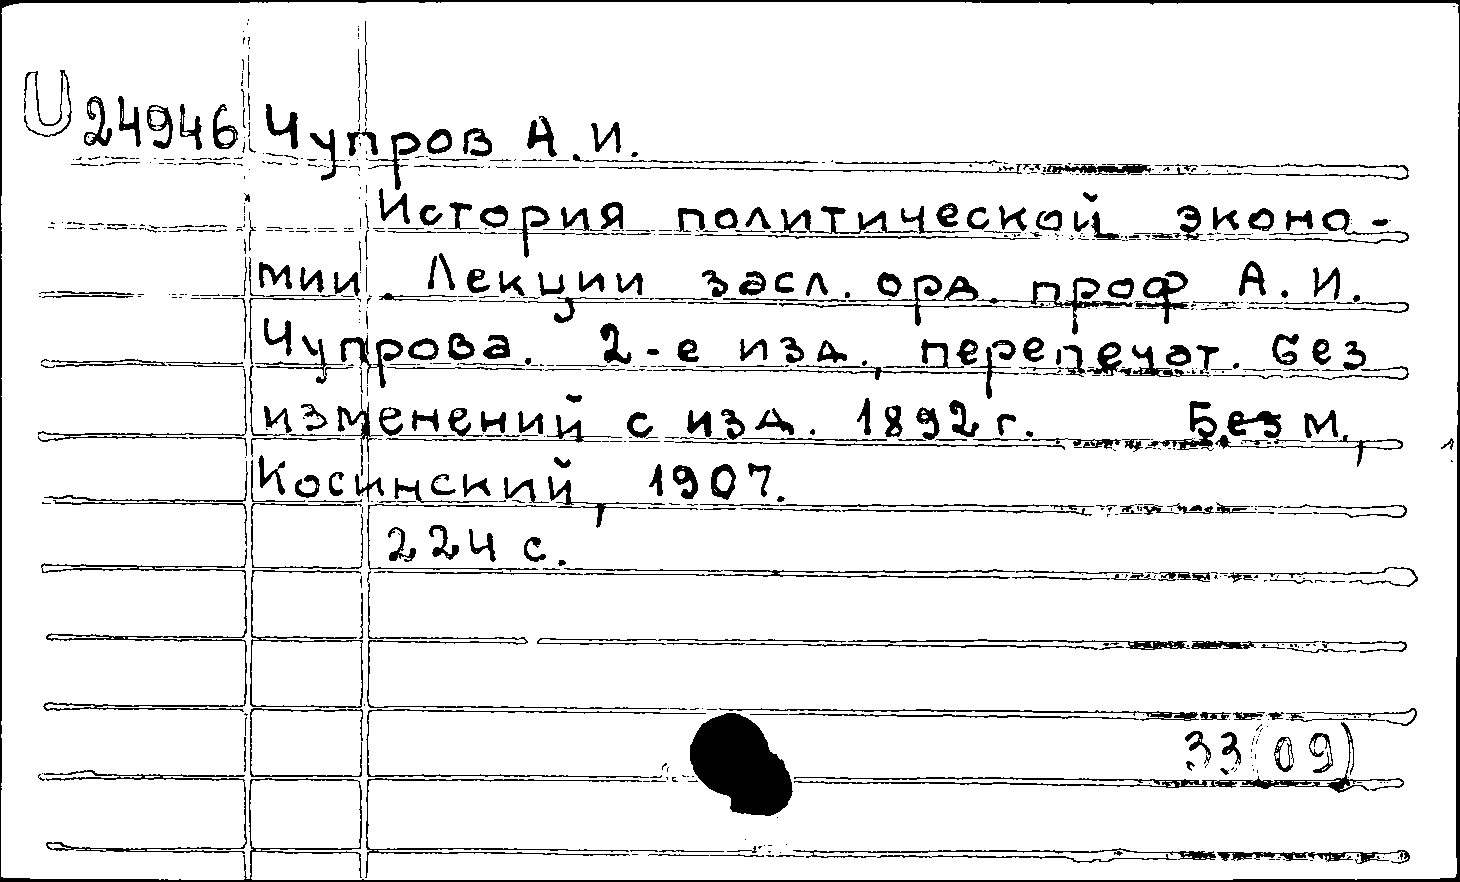 U 24946 Чупров А.И.
История политической эконо-
мии. Лекции засл. орд. проф А.И.
Чупрова. 2-е изд., перепечат. без
изменений с изд. 1892 г. Без м.,
Косинский, 1907.
224 с.
33(09)